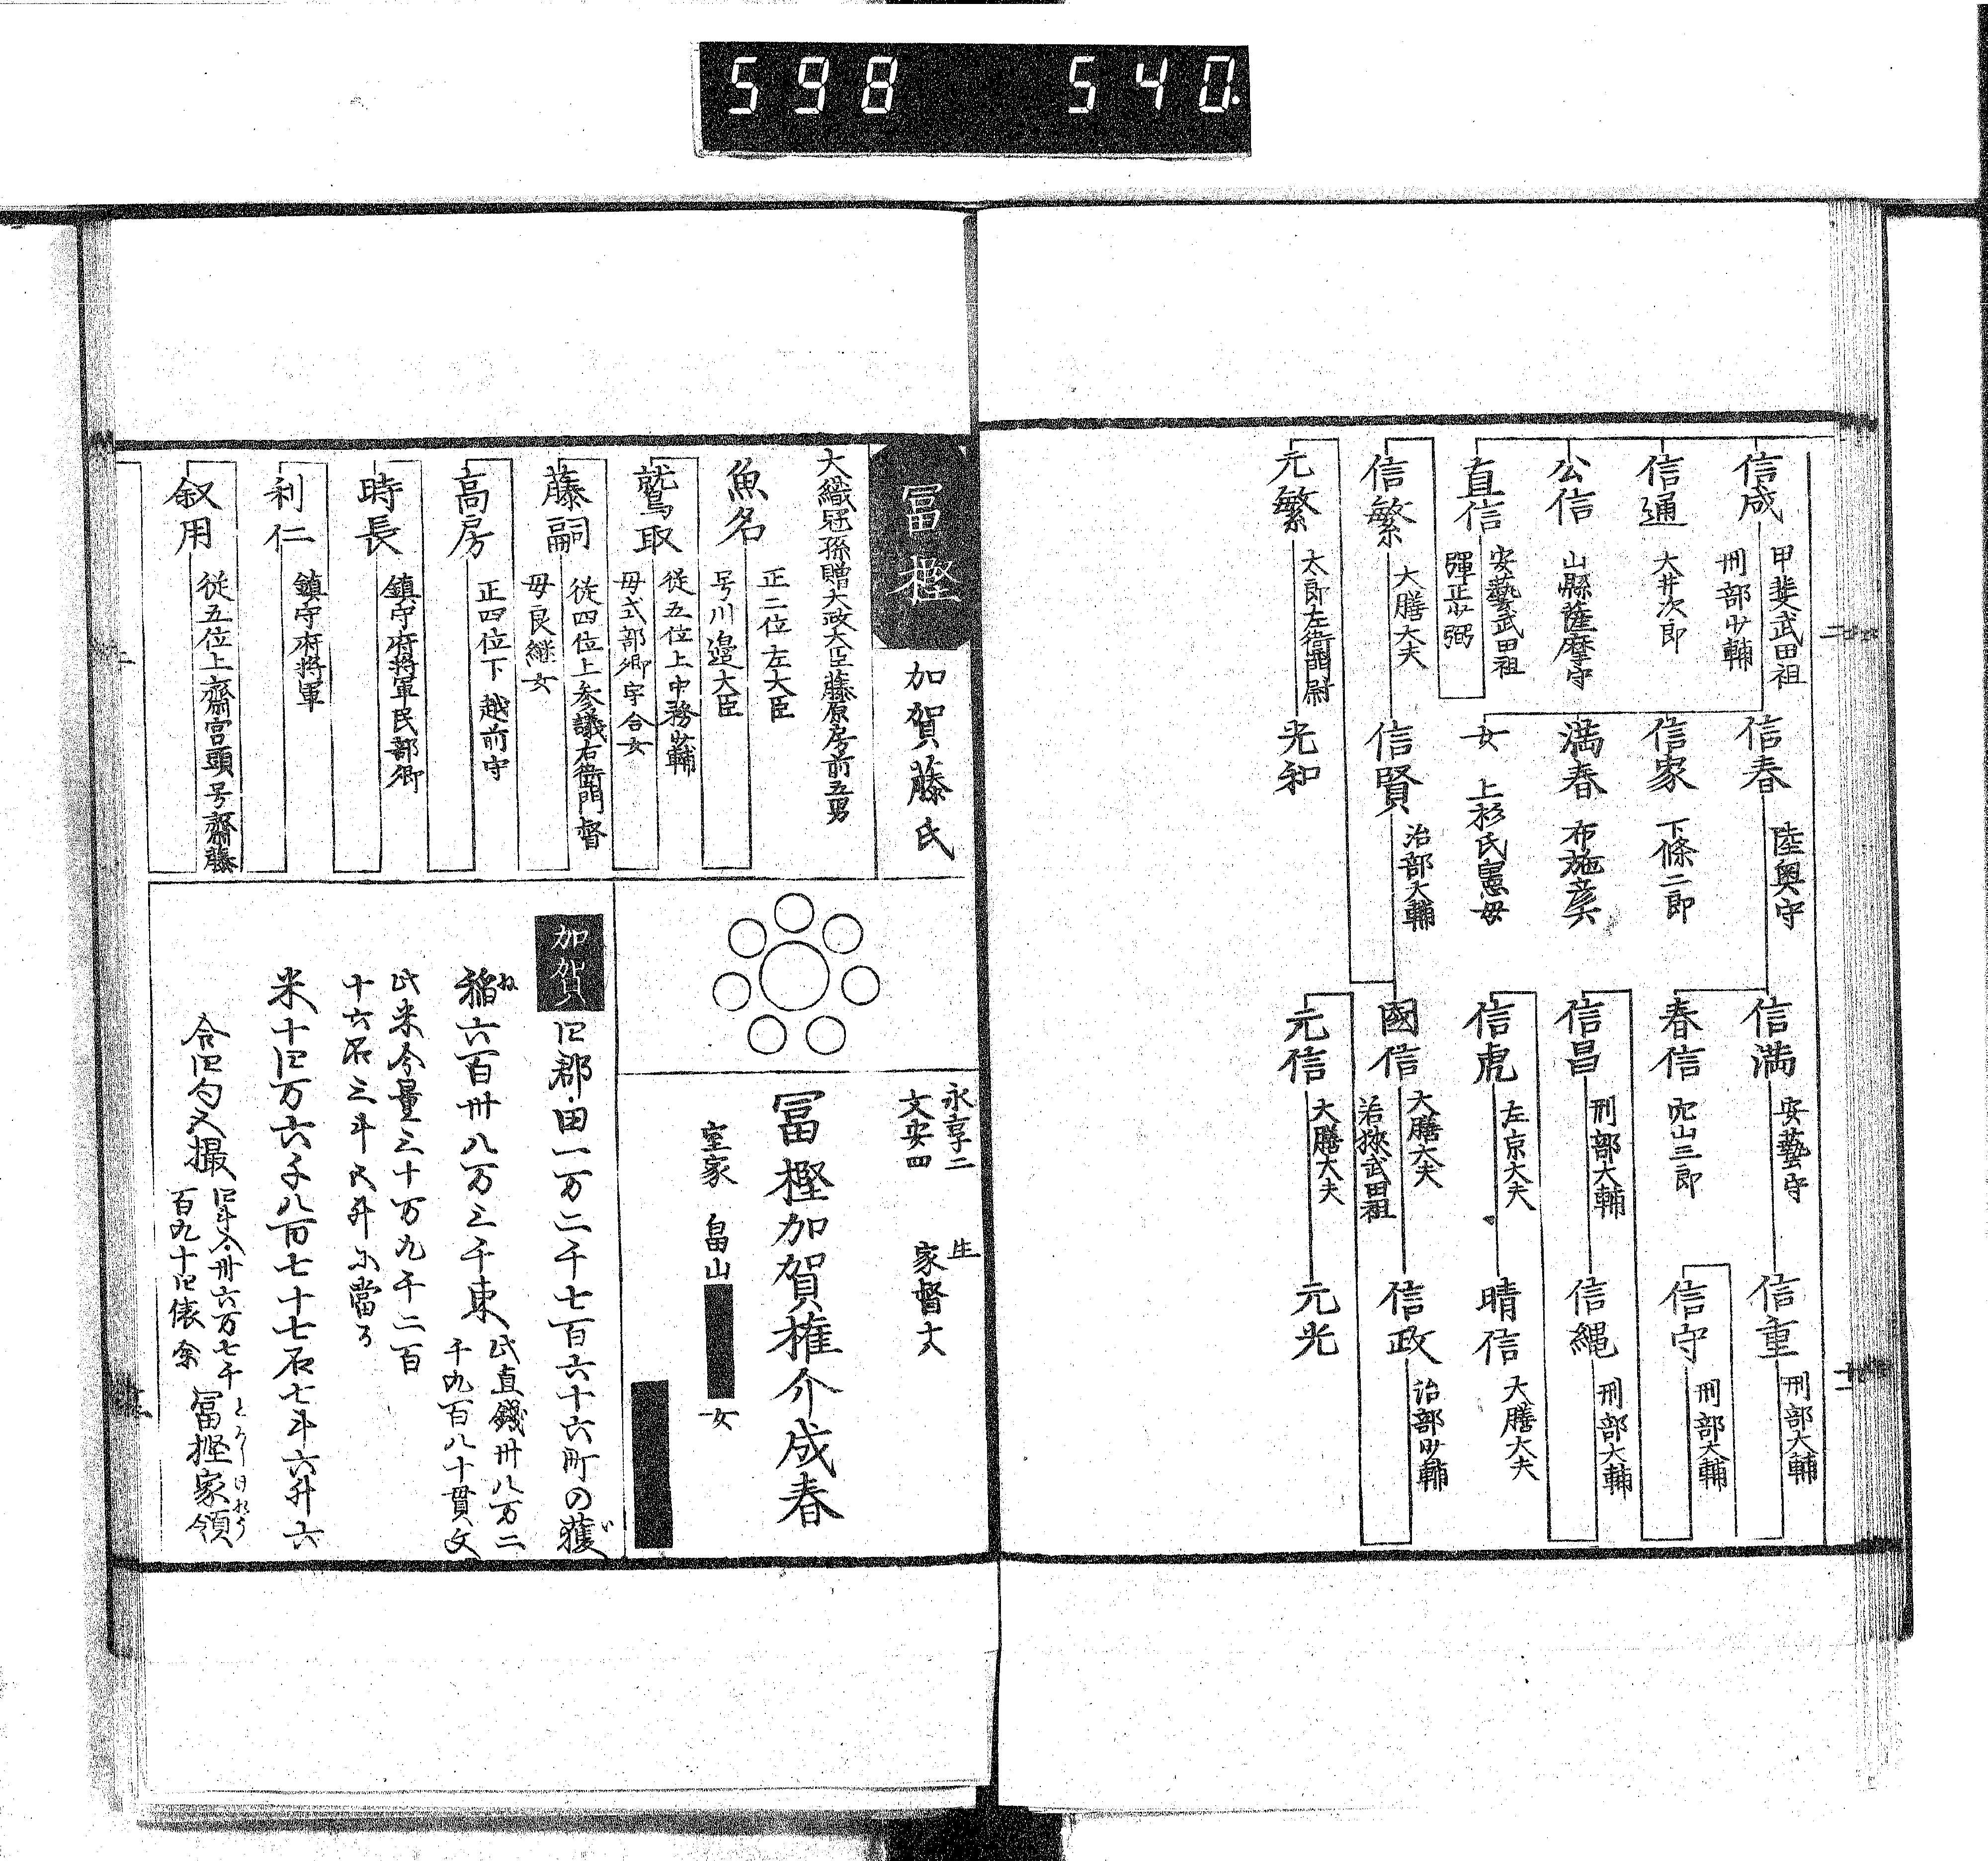 598 540
信成
甲斐武田祖
刑部少輔
信通
大井次郎
公信
山縣薩摩守
直信
安藝武田祖
彈正少弼
信繁
大膳大夫
元繁
太郎左衛門尉
信春
陸奥守
信家
下條二郎
満春
布施彦六
女
上杉氏憲母
信賢
治部大輔
光和
信満
安藝守
春信
穴山三郎
信昌
刑部大輔
信虎
左京大夫
國信
大膳大夫
若狹武田祖
元信
大膳大夫
信重
刑部大輔
信守
刑部大輔
信縄
刑部大輔
晴信
大膳大夫
信政
治部少輔
元光
冨樫
加賀藤氏
大織冠孫贈大政大臣藤原房前五男
魚名
正二位左大臣
号川邉大臣
鷲取
従五位上中務少輔
母式部卿宇合女
藤嗣
従四位上参議右衛門督
母良継女
高房
正四位下 越前守
時長
鎮守府将軍民部卿
利仁
鎮守府将軍
叙用
従五位上齋宮頭号齋藤
永享二 生
文安四 家督
冨樫加賀権介成春
室家 畠山 女
加賀
四郡・田一万二千七百六十六町の獲
稲六百卅八万三千束
此直錢卅八万二
千九百八十貫文
此米今量三十万九千二百
十六石三斗六升に當る
米十四万六千八百七十七石七斗六升六
合四勺又撮
四斗入卅六万七千
百九十四俵余
冨樫家領